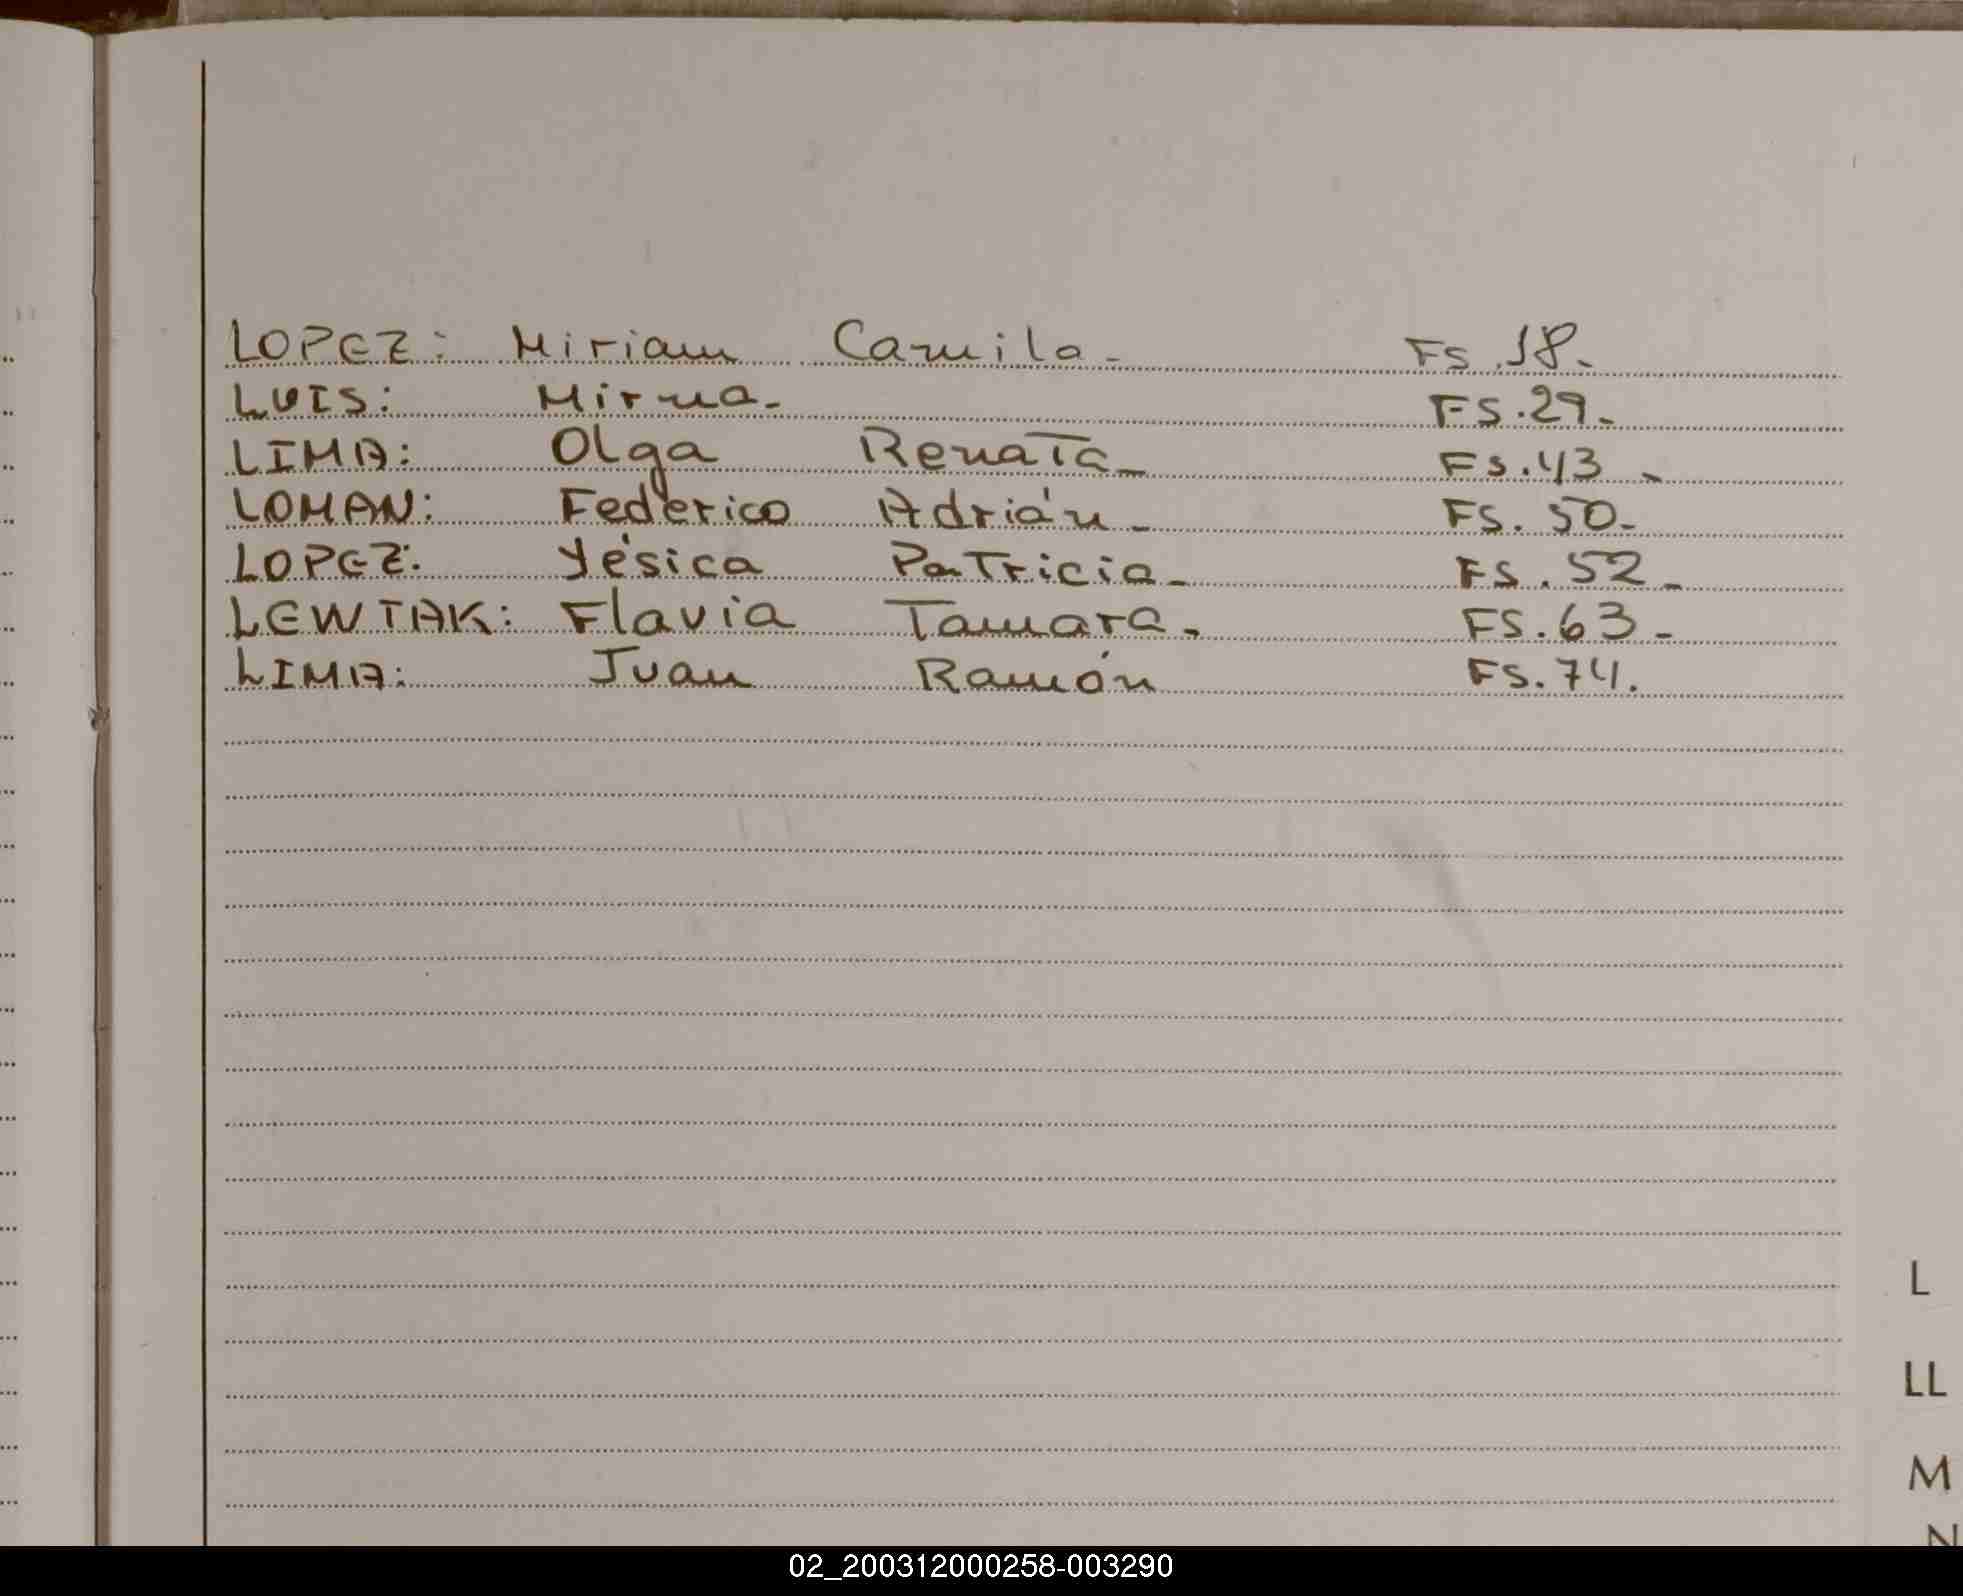 LOPEZ: Miriam Camila- FS.18.-
LUIS: Mirna- FS.29-
LIMA: Olga Renata- FS.43-
LOMAN: Federico Adrián- FS.50-
LOPEZ: Yésica Patricia- FS.52-
LEWTAK: Flavia Tamara- FS.63-
LIMA: Juan Ramón FS.74.
L
LL
M
N
02_200312000258-003290